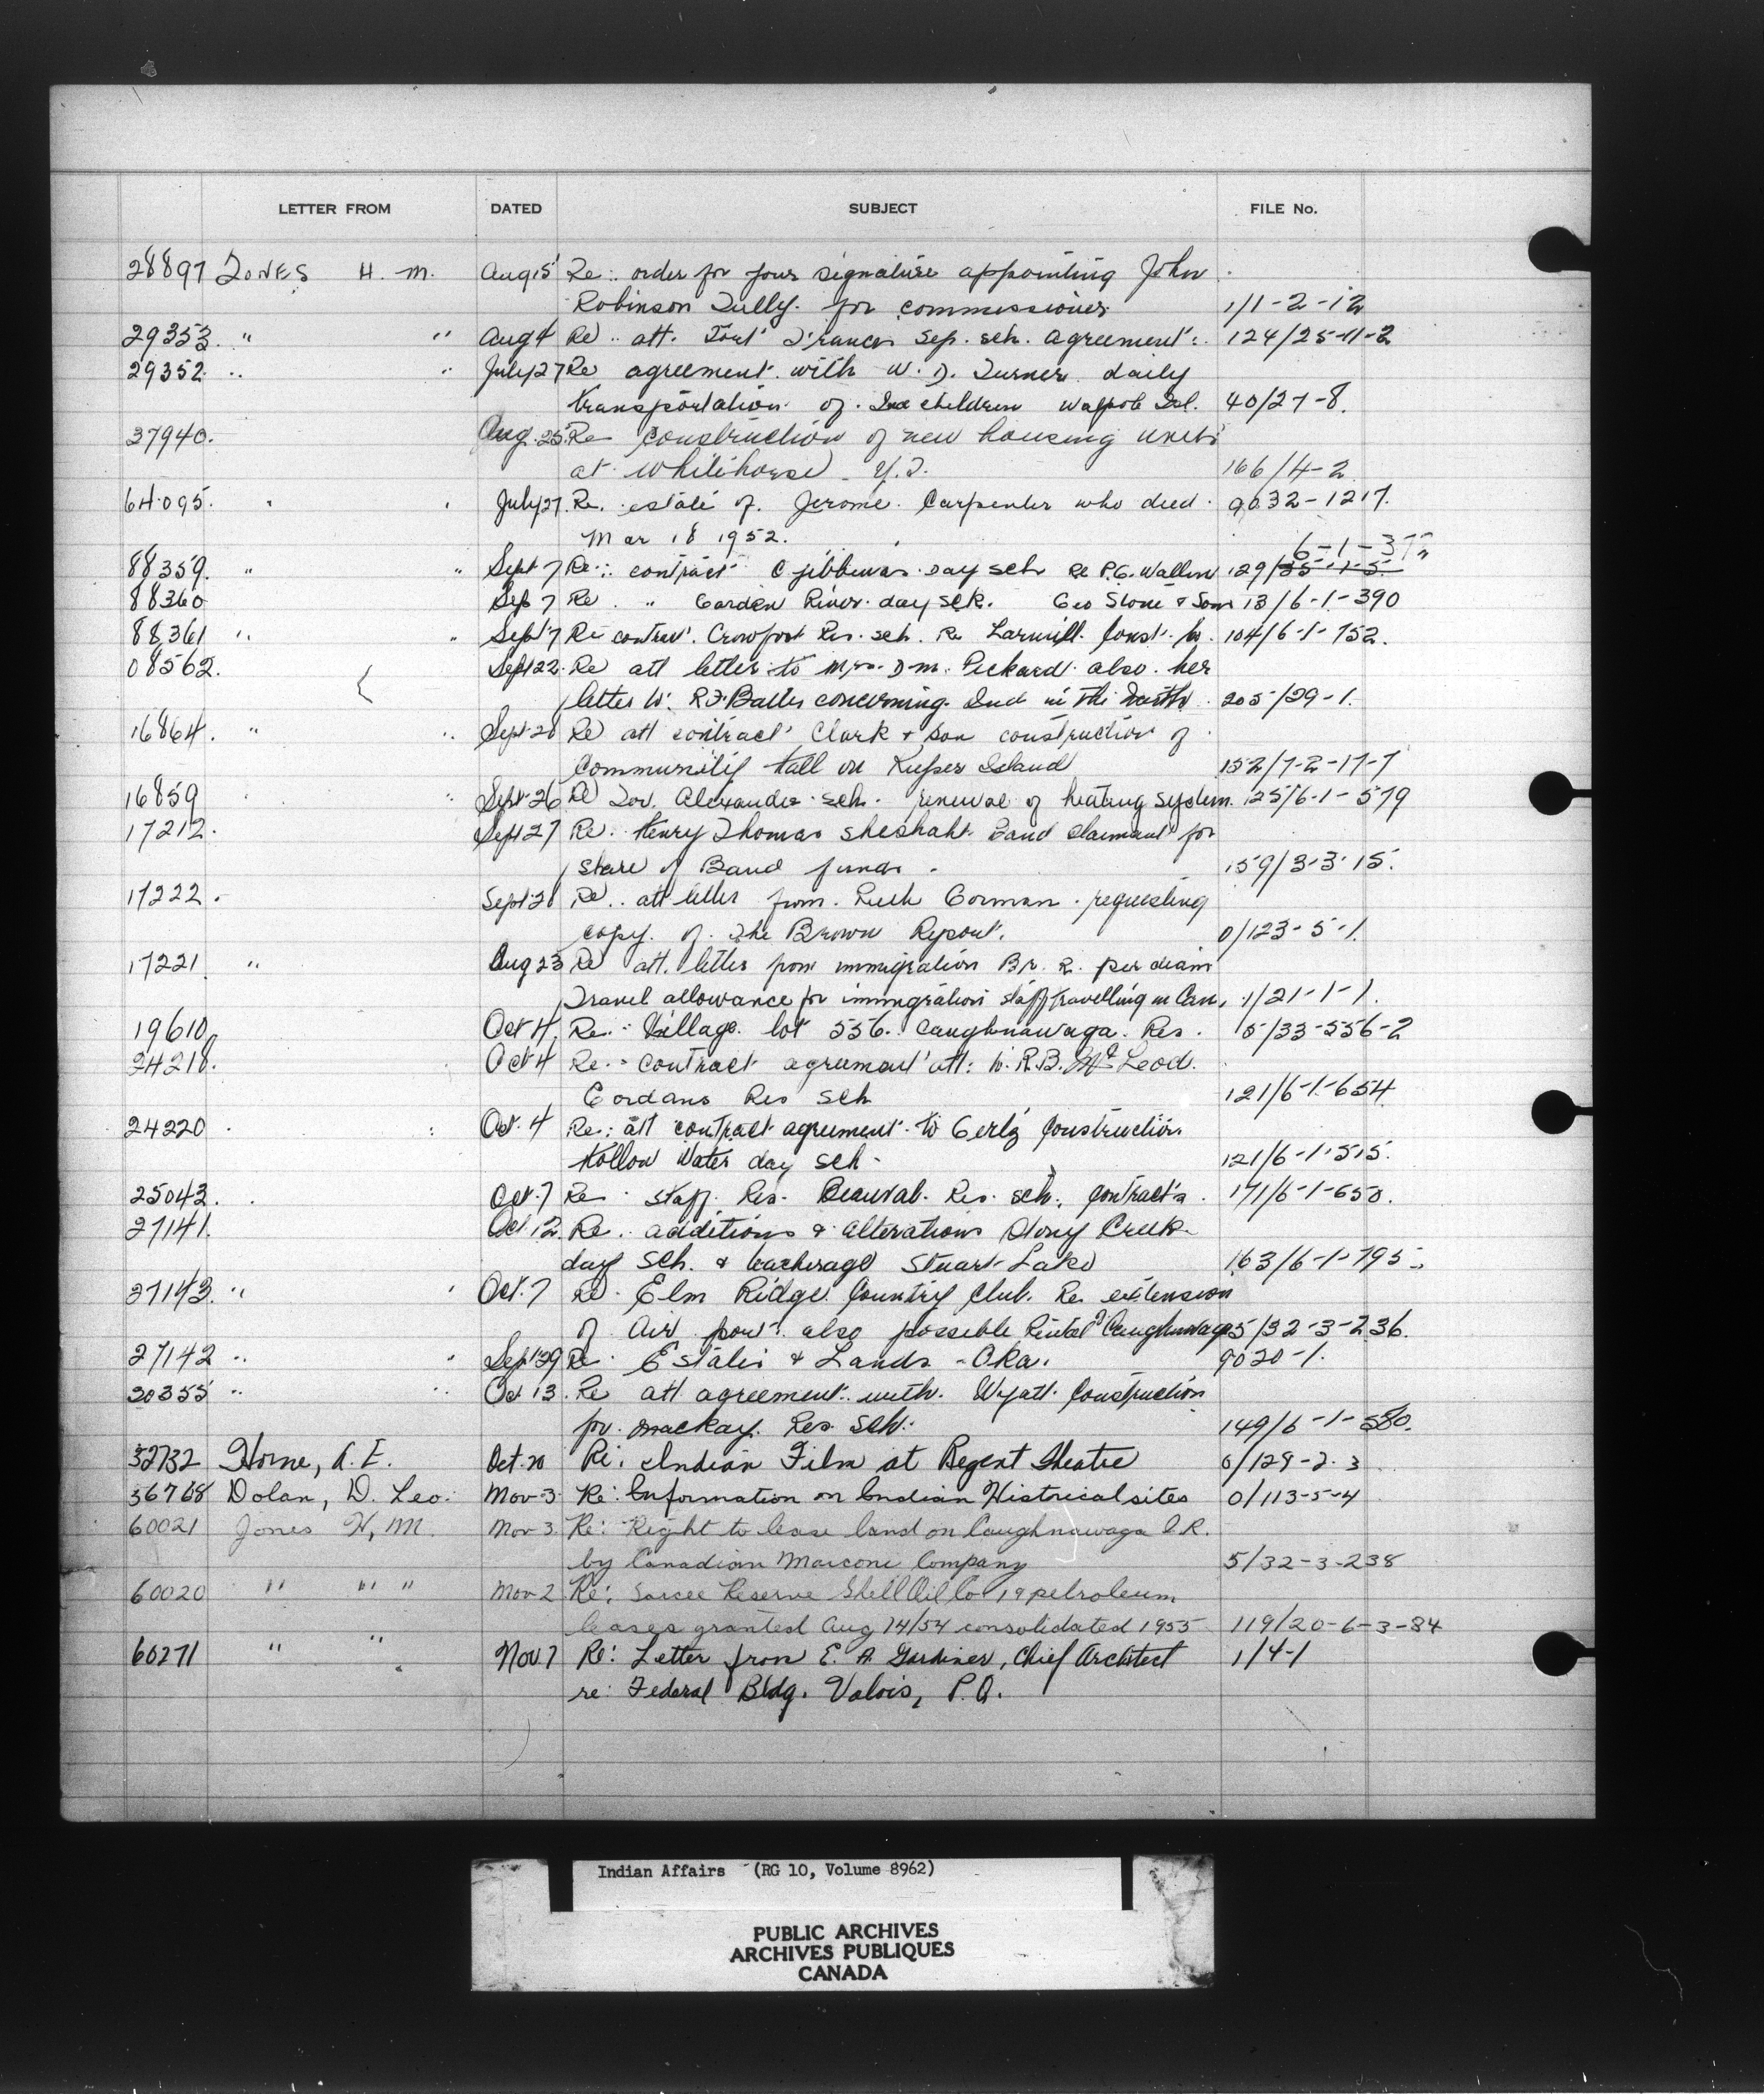 LETTER FROM DATED SUBJECT FILE No.
28897 JONES H. M. Aug 15 Re: order for your signature appointing John
Robinson Tully for commissioner 1/1-2-12
29353 " " Aug 4 Re att. Fort Frances Sep. sch. agreement 124/25-11-2
29352 " " July 27 Re agreement with W. D. Turner daily
transportation of Ind children Walpole Isl. 40/27-8.
37940. Aug. 25 Re construction of new housing units
at Whitehorse Y.T. 166/4-2
64095. " " July 27. Re. estate of Jerome Carpenter who died 9032-1217.
Mar 18 1952.
6-1-3
88359. " " Sept 7 Re: contract Ojibbewas day sch Re P.G. Wallin 129/35-1-5
88360 Sep 7 Re " Garden River day sch. Geo Stone & Son 13/6-1-390
88361 " " Sept 7 Re contract. Crowfoot Res. sch. Re Larwill Const. Co. 104/6-1-752.
08562. Sept 22 Re att letter to Mrs. D.M. Pickard also her
letter to R.F. concerning Ind in the North 205/29-1.
16864. " " Sept 26 Re att contract Clark & Son construction of
Community Hall on Kuper Island 152/7-2-17-7
16859 " " Sept 26 Re Gov. Alexander sch. renewal of heating system. 125/6-1-579
17212. Sept 27 Re. Henry Thomas Sheshaht Band claimant for
share of Band funds. 159/3-3-15.
17222. Sept 28 Re. att letter from Ruth Gorman requesting
copy of the Brown Report. 0/123-5-1.
17221 " Aug 23 Re att. letter from immigration Br. R. per diam
Travel allowance for immigration staff travelling in Can. 1/21-1-1.
19610. Oct 4. Re: Village lot 556. Caughnawaga Res. 5/33-556-2
24218. Oct 4 Re: contract agreement att: to R.B. McLeod.
Gordans Res Sch 121/6-1-654
24220 Oct. 4 Re: att contract agreement to Gertz Construction
Hollow Water day sch. 121/6-1-515.
25043. Oct. 7 Re staff Res. Beauval Res. sch. Contracts. 171/6-1-650.
27141. Oct 12 Re. additions & alterations Stony Creek
day sch. & teacherage Stuart Lake 163/6-1-795.
27143. " " Oct. 7 Re. Elm Ridge Country Club. Re extension
of Air port also possible Rental of Caughnawaga 5/32-3-236.
27142 " " Sept 29 Re Estates & Lands - Oka. 9020-1.
30355 " " Oct 13. Re att agreement with Wyatt Construction
for Mackay Res. Sch. 149/6-1-580.
32732 Horne, A. E. Oct. 20 Re: Indian Film at Regent Theatre 0/129-2-3
36768 Dolan, D. Leo. Mov-3 Re: Information on Indian Historical sites 0/113-5-4
60021 Jones H, M. Nov 3 Re: Right to lease land on Caughnawaga I.R.
by Canadian Marconi Company 5/32-3-238
60020 " " " Nov-2 Re: Sarcee Reserve Shell Oil Co 19 petroleum
leases granted Aug 14/54 consolidated 1955 119/20-6-3-84
60271 " " Nov. 7 Re: Letter from E. A. Gardiner, Chief Architect 1/4-1
re: Federal Bldg. Valois, P.Q.
Indian Affairs (RG 10, Volume 8962)
PUBLIC ARCHIVES
ARCHIVES PUBLIQUES
CANADA